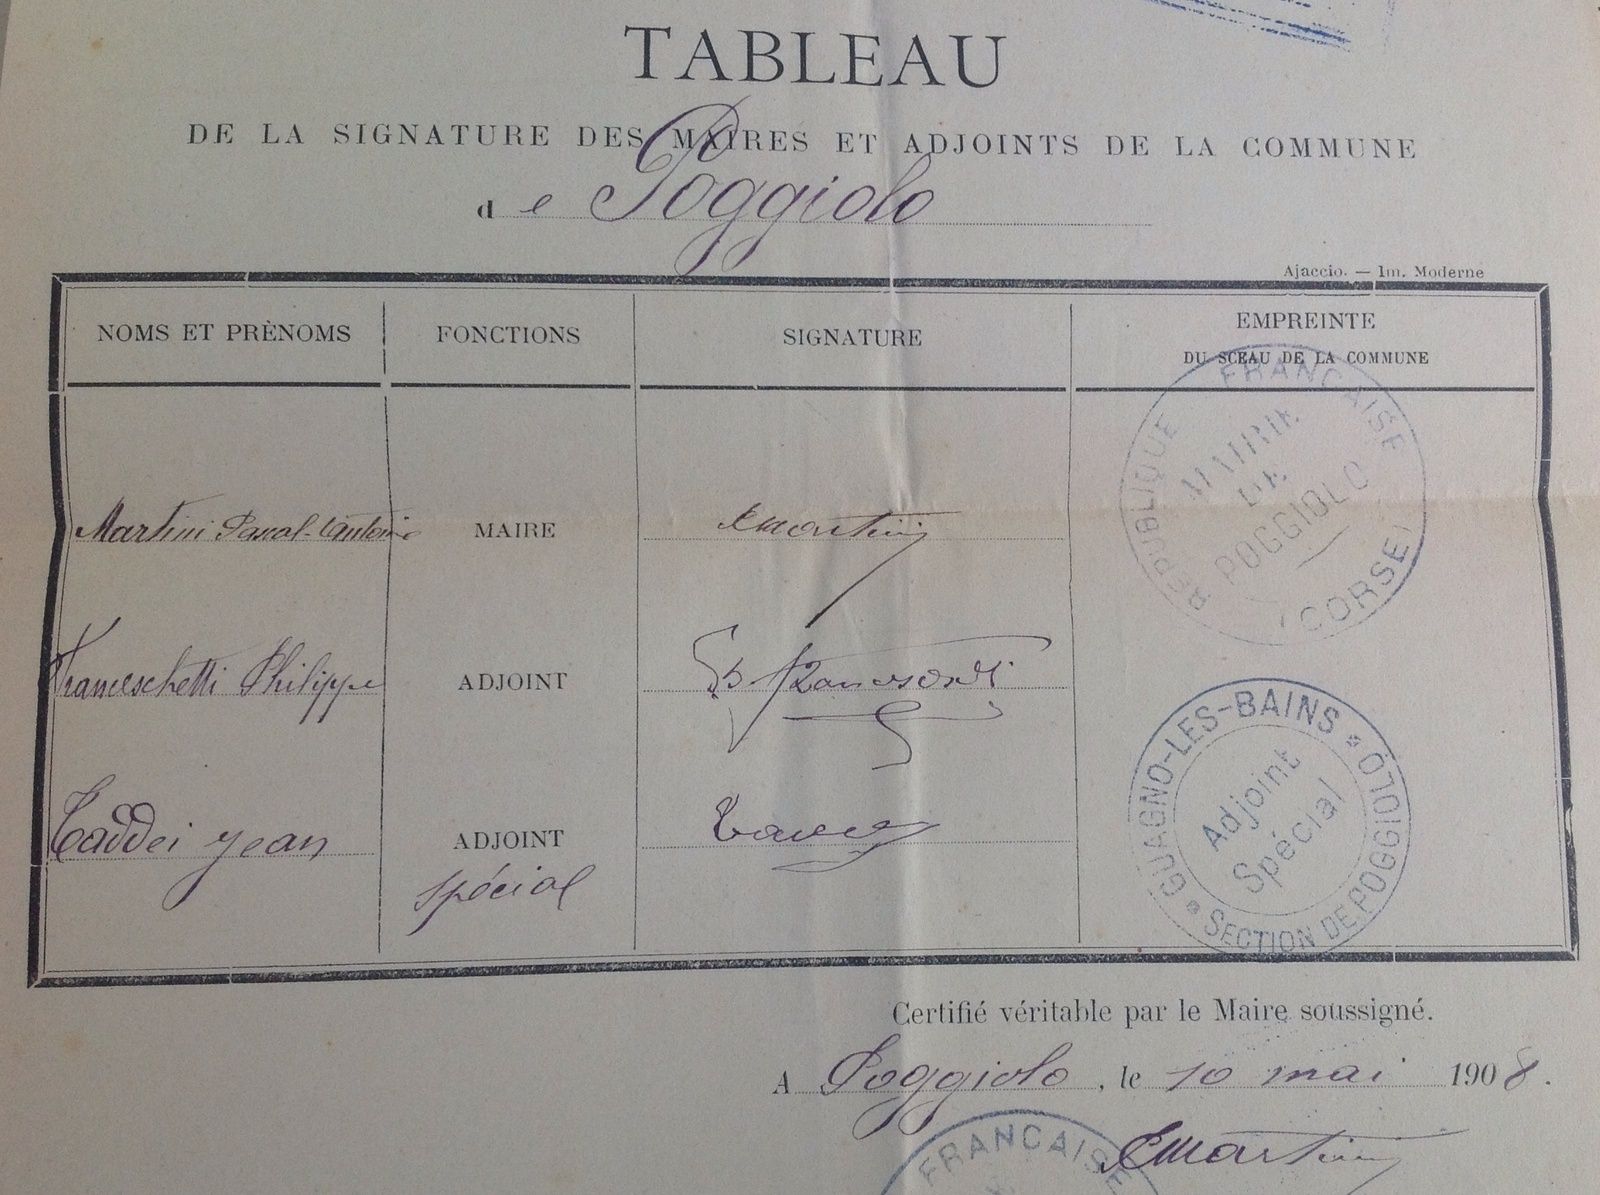 TABLEAU
DE LA SIGNATURE DES MAIRES ET ADJOINTS DE LA COMMUNE
de Poggiolo
Ajaccio. — Im. Moderne
NOMS ET PRÈNOMS FONCTIONS SIGNATURE EMPREINTE
DU SCEAU DE LA COMMUNE
RÉPUBLIQUE FRANÇAISE
MAIRIE
DE
POGGIOLO
(CORSE)
Martini Pascal-Antoine MAIRE Martini
Franceschetti Philippe ADJOINT
Taddei Jean ADJOINT
spécial
GUAGNO-LES-BAINS * SECTION DE POGGIOLO *
Adjoint
Spécial
Certifié véritable par le Maire soussigné.
A Poggiolo, le 10 mai 1908.
FRANCAISE
Martini